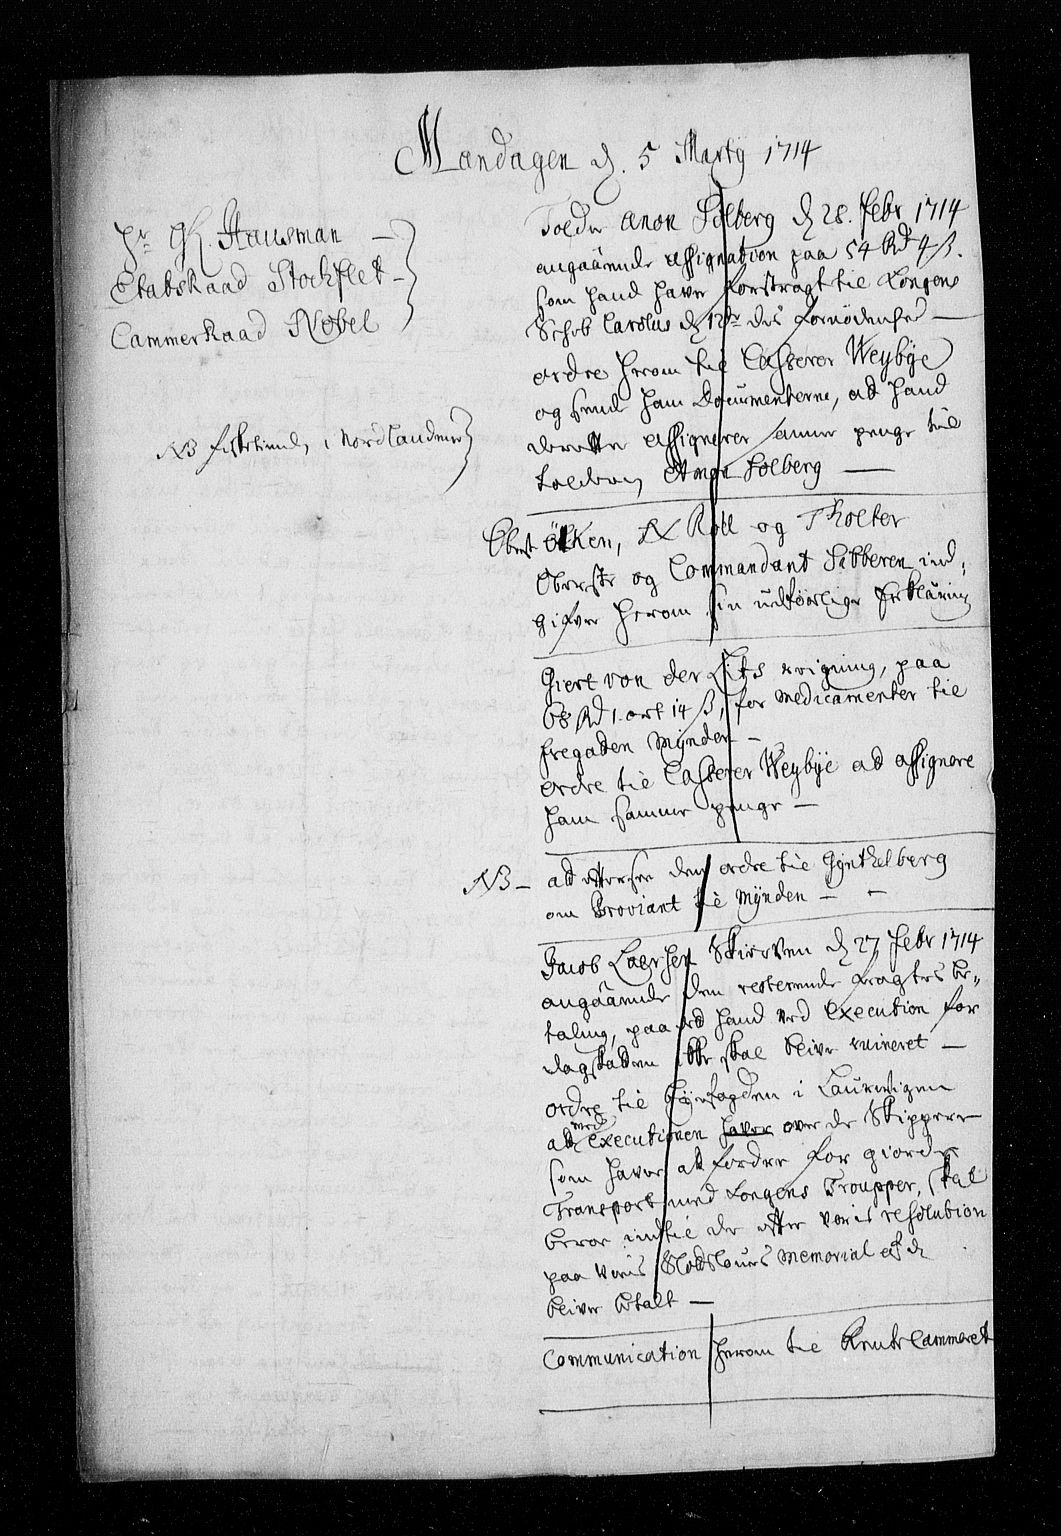 Mandagen d. 5 Marty 1714
Hr. Gl. Hausman —
Etatsraad Stockflet —
Cammerraad Nobel
NB fisketiend i Nordlandene
Tolder Anon Solberg d 28. Febr 1714
angaaende assignation paa 54 Rd 4 ß.
som hand haver forstragt til Kongens
Schib Carolus d 12te des fornødenhed —
ordre herom til Casserer Weybÿe
og send ham Documenterne, ad hand
derefter assignerer samme penge til
tolderen Anon Solberg —
Obrist Ötken, N Roll og Tholter
Oberste og Commandant Sibberen ind-
gifver herom sin udførlige Erklæring
Giert von der Lits reigning, paa
68 Rd 1 ort 14 ß, for Medicamenter til
fregaden Mÿnden —
ordre til Casserer Weybÿe ad assignere
ham samme penge —
NB — ad eftersee den ordre til Gÿntelberg
om Proviant til Mÿnden —
Jacob Laersen Skierven d 27 Febr 1714
angaaende den resterende fragtes be-
taling, paa ad hand ved execution for
dagskatten icke skal blive ruineret —
ordre til Bÿefogden i Laurvigen
at med executionen haver over de Skippere
som haver at fordre for giorde
Transport med Kongens Troupper, skal
beroe indtil de efter voris resolution
paa voris Slotslovs Memorial af d
bliver betalt —
Communication herom til RenteCammeret